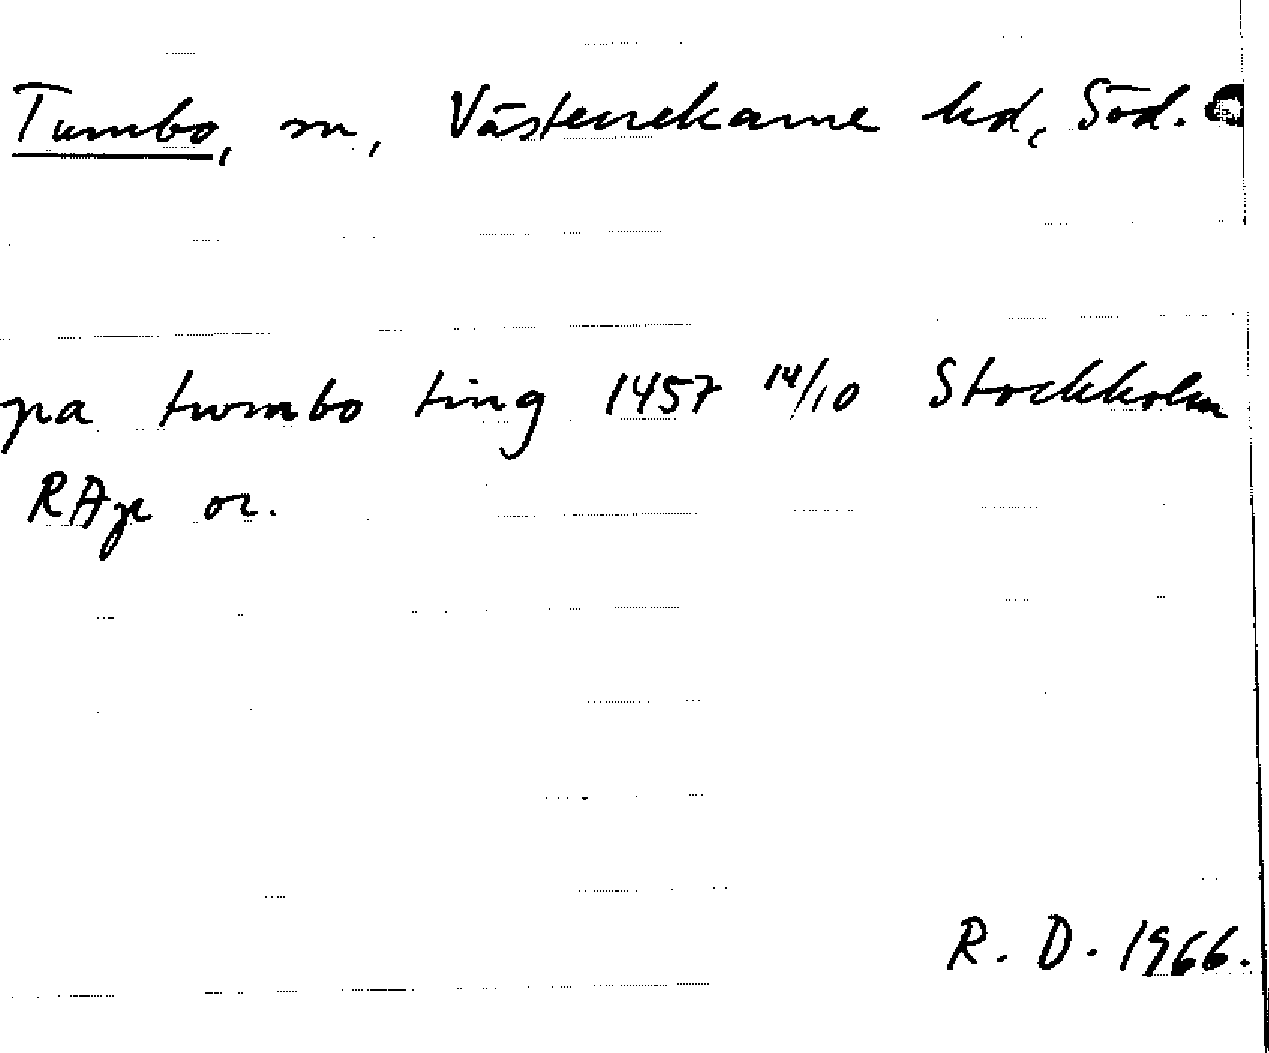 Tumbo, sn, Västerrekarne hd, Söd.
pa tumbo ting 1457 14/10 Stockholm
RAp or.
R. D. 1966.